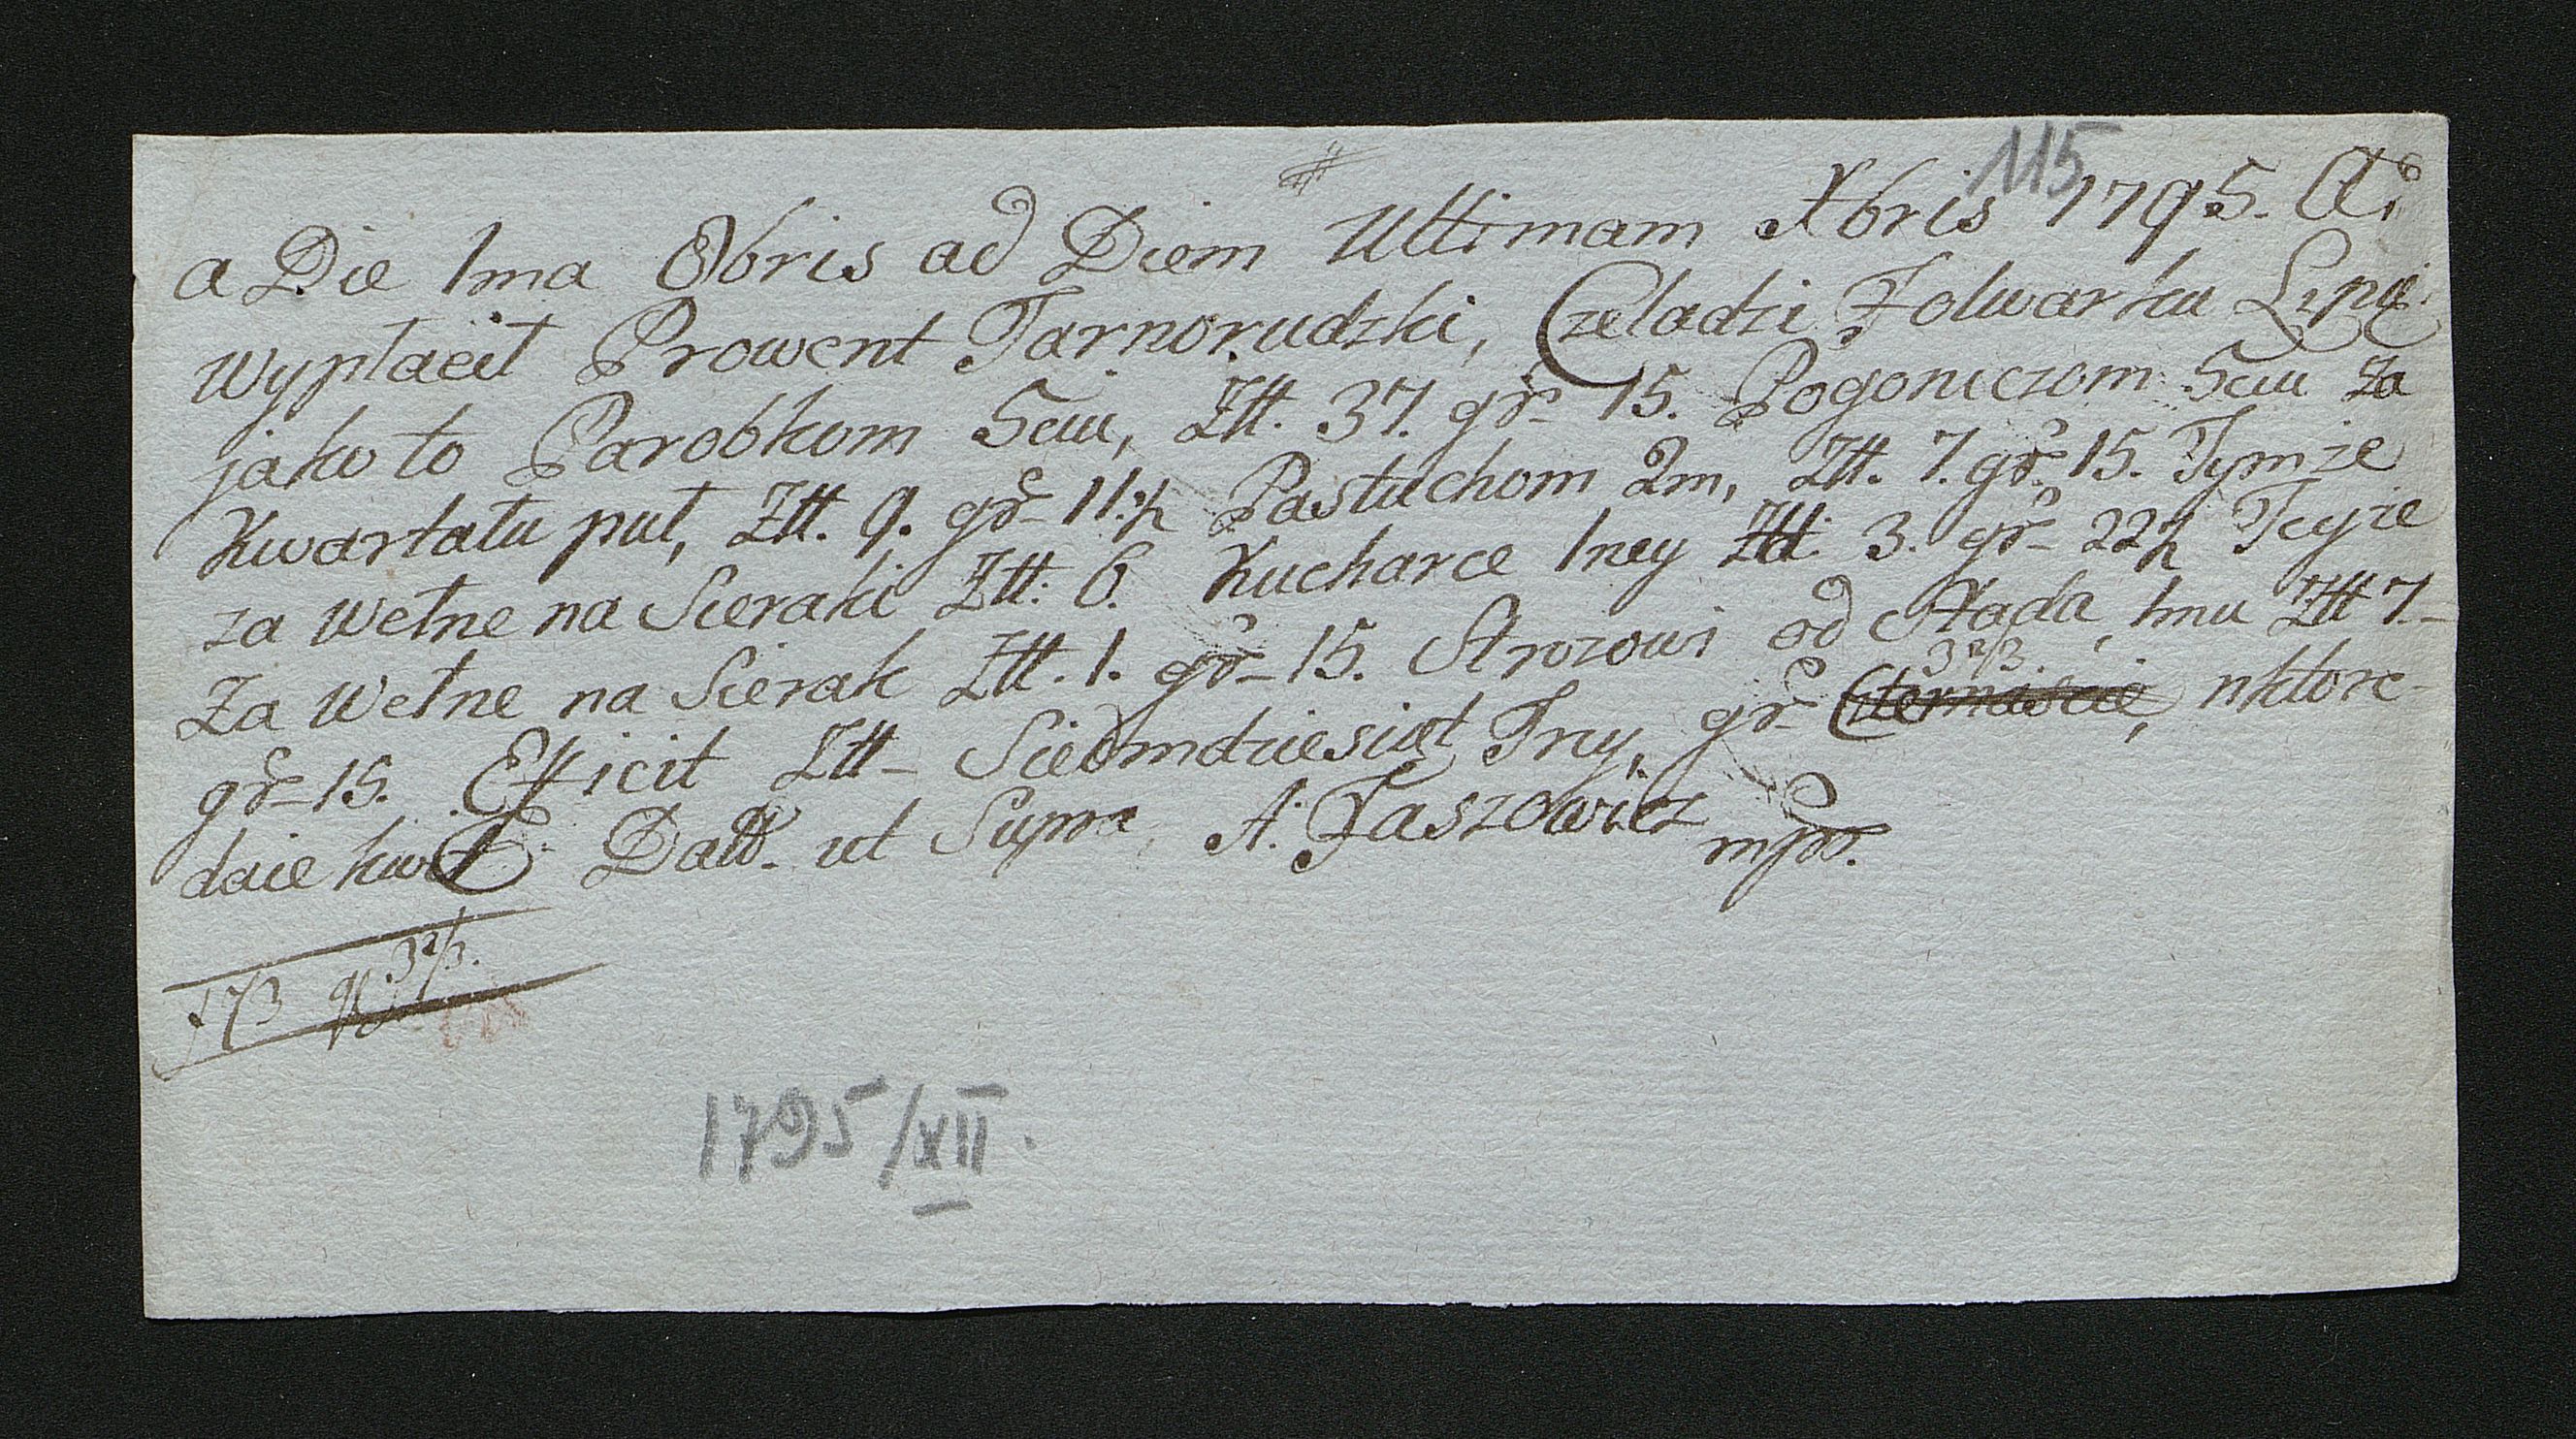 115
a Die 1ma 8bris ad Diem Ultimam Xbris 1795. Ao
wypłacił Prowent Tarnorudzki, Czeladzi Folwarku Lipie.
jako to Parobkom 5ciu, Złł. 37. gr 15. Pogoniczom 5ciu za
Kwartału puł, Złł. 9. gr 11½ Pastuchom 2m, Złł. 7. gr 15. Tymże
za wełne na Sieraki Złł. 6. Kucharce 1ney Złł 3. gr 22½ Teyże
Za wełne na Sierak Złł. 1. gr 15. Strozowi od Stada, 1mu Złł 7-
gr 15. Efficit Złł- Siedmdziesiąt Trzy, gr 3 2/3. Czternaście, nktore-
daie kwit Datt. ut Supra, A. Faszowicz mpr.
f 73 gl 3 2/3.
1795/XII.